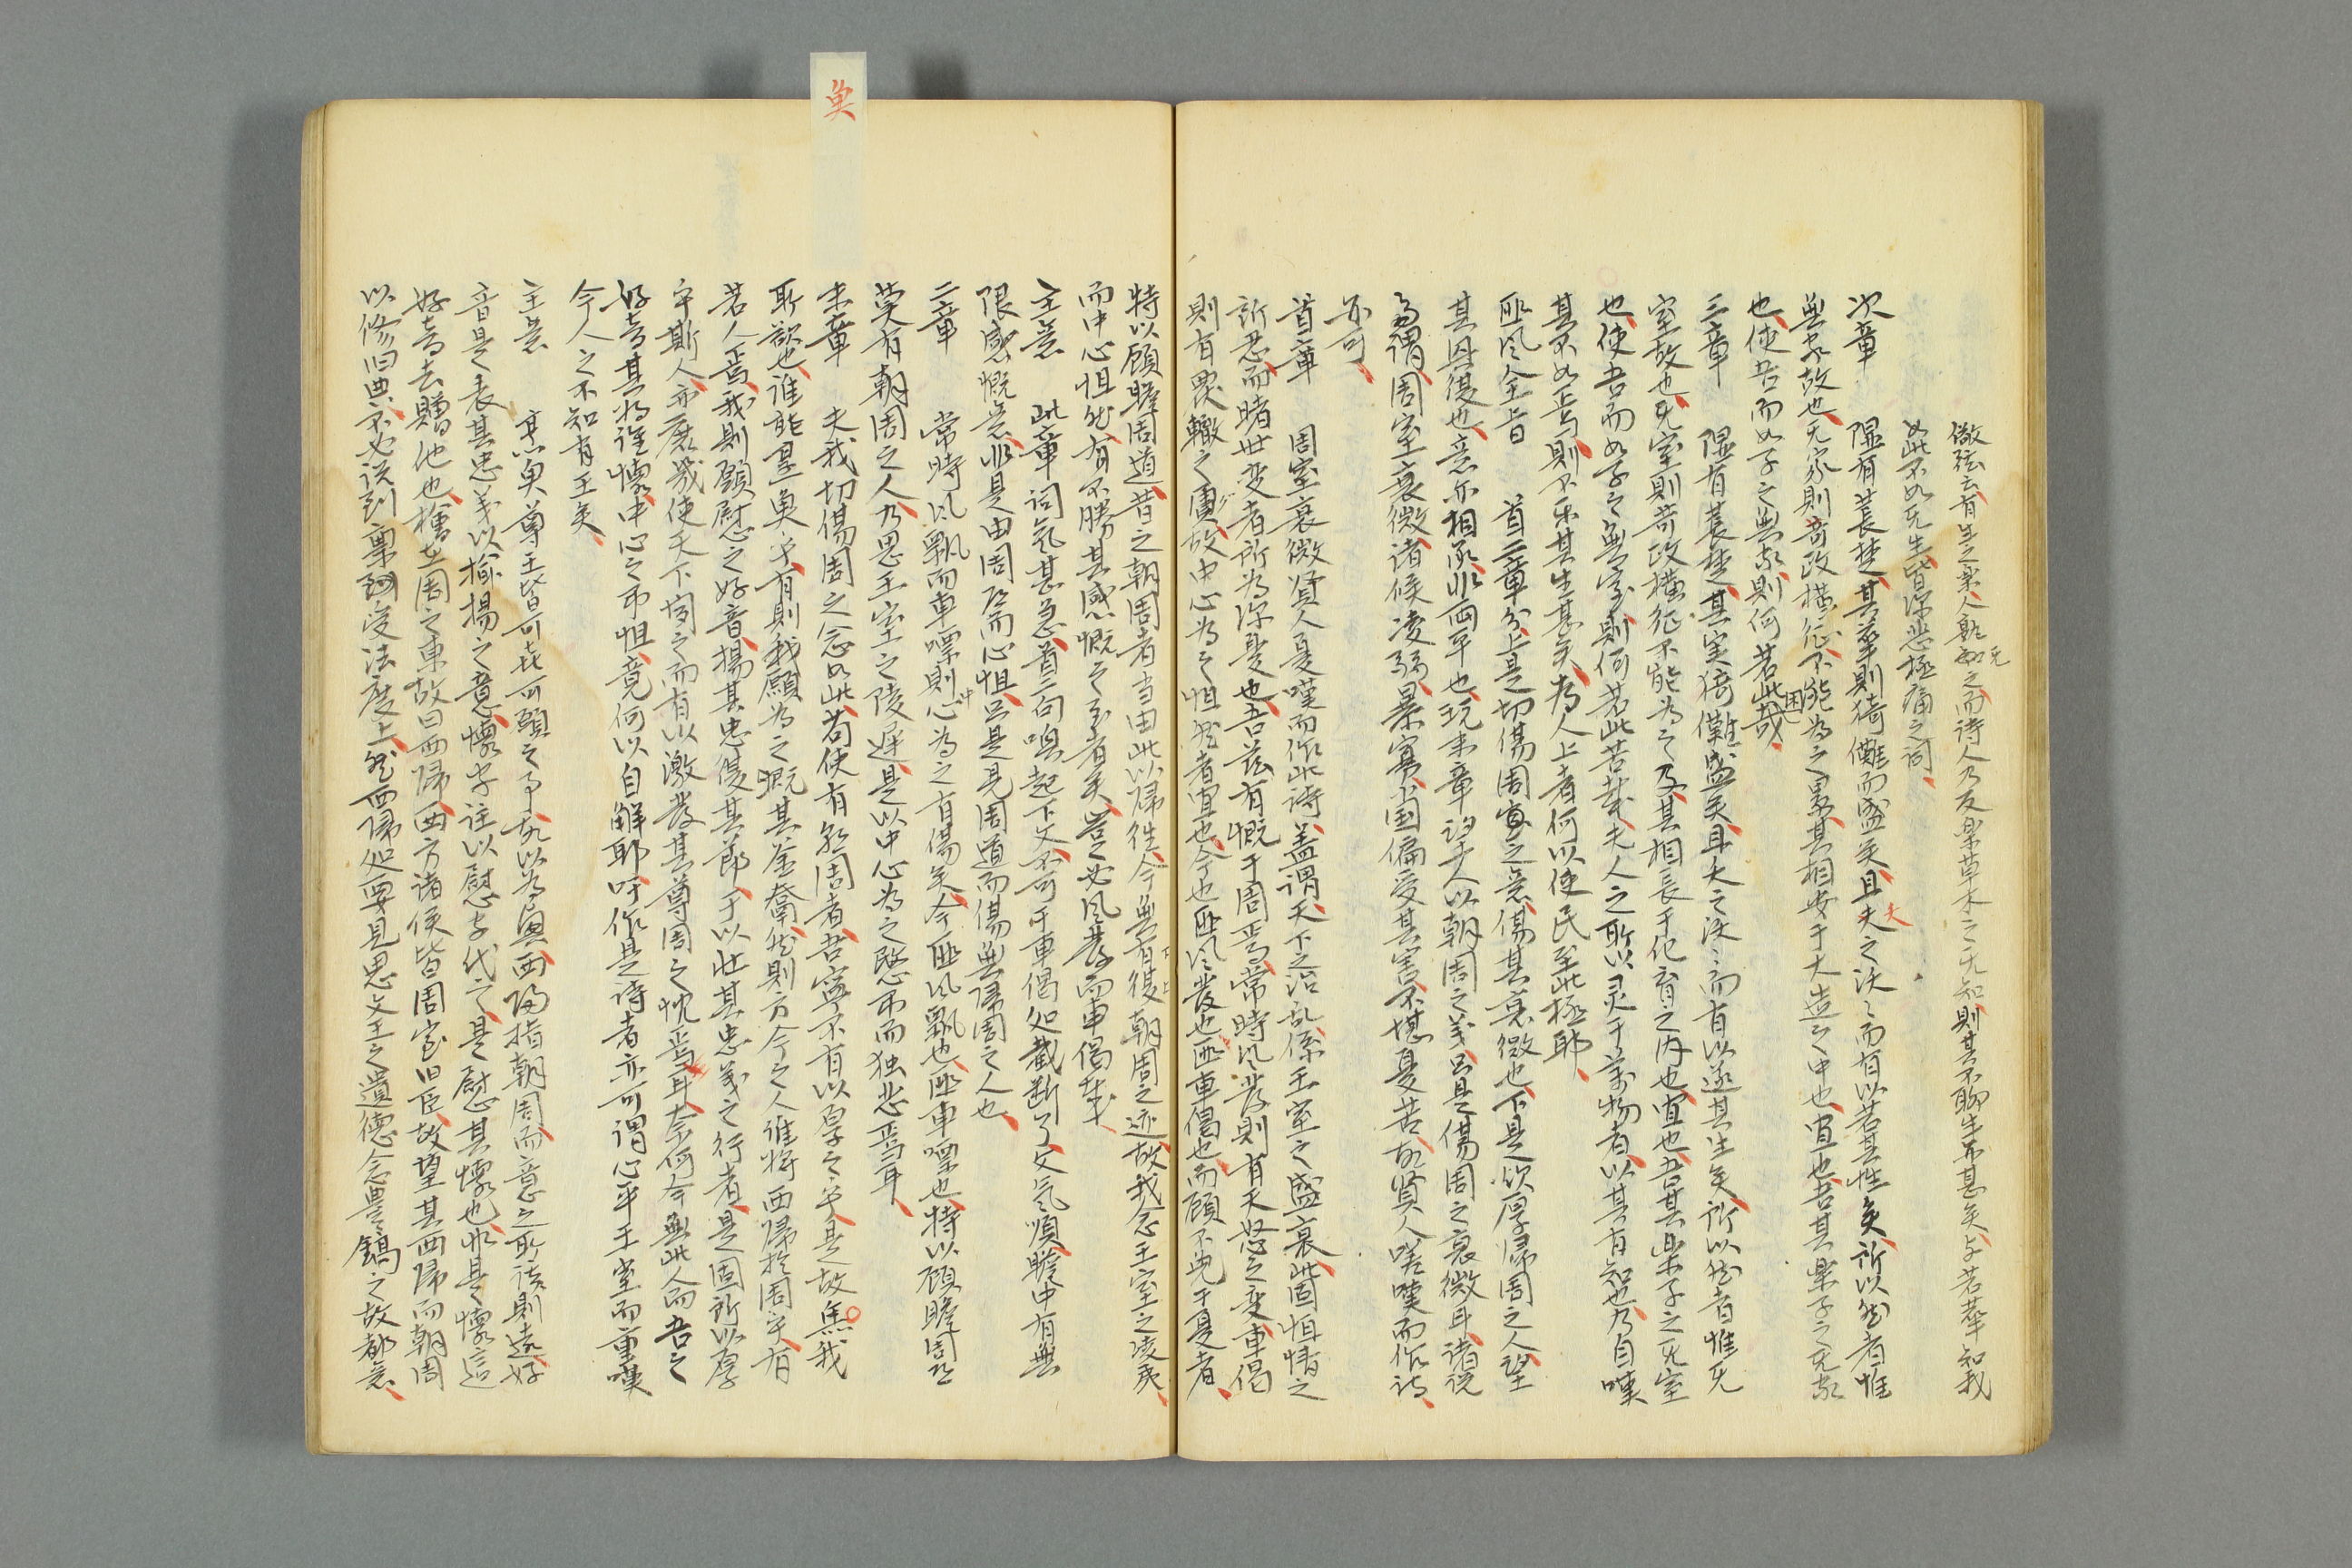 徽弦云有生之楽人孰无之而诗人乃反楽草木之无知則其不聊生亦甚矣与苕華知我
如此不如无生皆深悲極痛之词
次章　隰有萇楚其華則猗儺而盛矣且夭之沃〻而有以若其性矣所以然者惟
無家故也无家則苛政横征不能為之累其相安于大造之中也宜也吾其楽子之无家
也使吾而如子之無家則何若此困哉
三章　隰有萇楚其実猗儺盛矣且夭之沃〻而有以遂其生矣所以然者惟无
室故也无室則苛政横征不能為之及其相長于化育之内也宜也吾其楽子之无室
也使吾而如子之無室則何若此苦哉夫人之所以灵于萬物者以其有知也乃自嘆
其不如焉則不乐其生甚矣為人上者何以使民至此極耶
匪風全旨　首二章分上是切傷周室之意傷其衰微也下是欲厚帰周之人望
其興復也意亦相承非両平也玩末章望人以朝周之義只是傷周之衰微耳諸说
多謂周室衰微诸侯凌弱暴寡小国偏受其害不堪憂苦故賢人嗟嘆而作诗
亦可
首章　周室衰微贤人憂嘆而作此诗盖謂天下之治乱係王室之盛衰此固恒情之
所忍而睹世变者所為深憂也吾茲有慨于周焉常時風發則有天怒之变車偈
則有畏轍之虞故中心為之怛然者宜也今也匪风發也匪車偈也而顧不免于憂者
特以顧瞻周道昔之朝周者当由此以帰往今無有復朝周之迹故我念王室之凌夷
而中心怛然有不勝其感慨之至者矣豈必风發而車偈哉
主意　此章词氣甚急首二句喚起下文不可于車偈処截断了文氣順瞻中有無
限感慨意非是由周道而心怛只是見周道而傷無帰周之人也
二章　常時风飄而車嘌則中心為之有傷矣今匪风飄也匪車嘌也特以顧瞻周道
莫有朝周之人乃思王室之陵遲是以中心為之愍弔而独悲焉耳
末章　夫我切傷周之念如此苟使有归周者吾寧不有以厚之乎是故魚我
所欲也谁能烹魚乎有則我願為之溉其釜鬵然則方今之人谁将西帰於周乎有
若人焉我則願慰之好音揚其忠復其節于以壮其忠義之行者是固所以厚
乎斯人亦庶幾使天下闻之而有以激發其尊周之忱焉耳奈何今無此人而吾之
好音其将谁懷中心之弔怛竟何以自解耶吁作是诗者亦可謂心乎王室而重嘆
今人之不知有王矣
主意　烹魚尊王皆可喜可願之事故以為興西帰指朝周而言意之所该則遠好
音是表其忠義以揄揚之意懷字注以慰字代之是慰其懷也非是懷這
好音去贈他也檜在周之東故曰西帰西方诸侯皆周室旧臣故望其西帰而朝周
以修旧典不必说到稟朔受法度上然西帰処要見思文王之遺德念豊鎬之故都意
魚